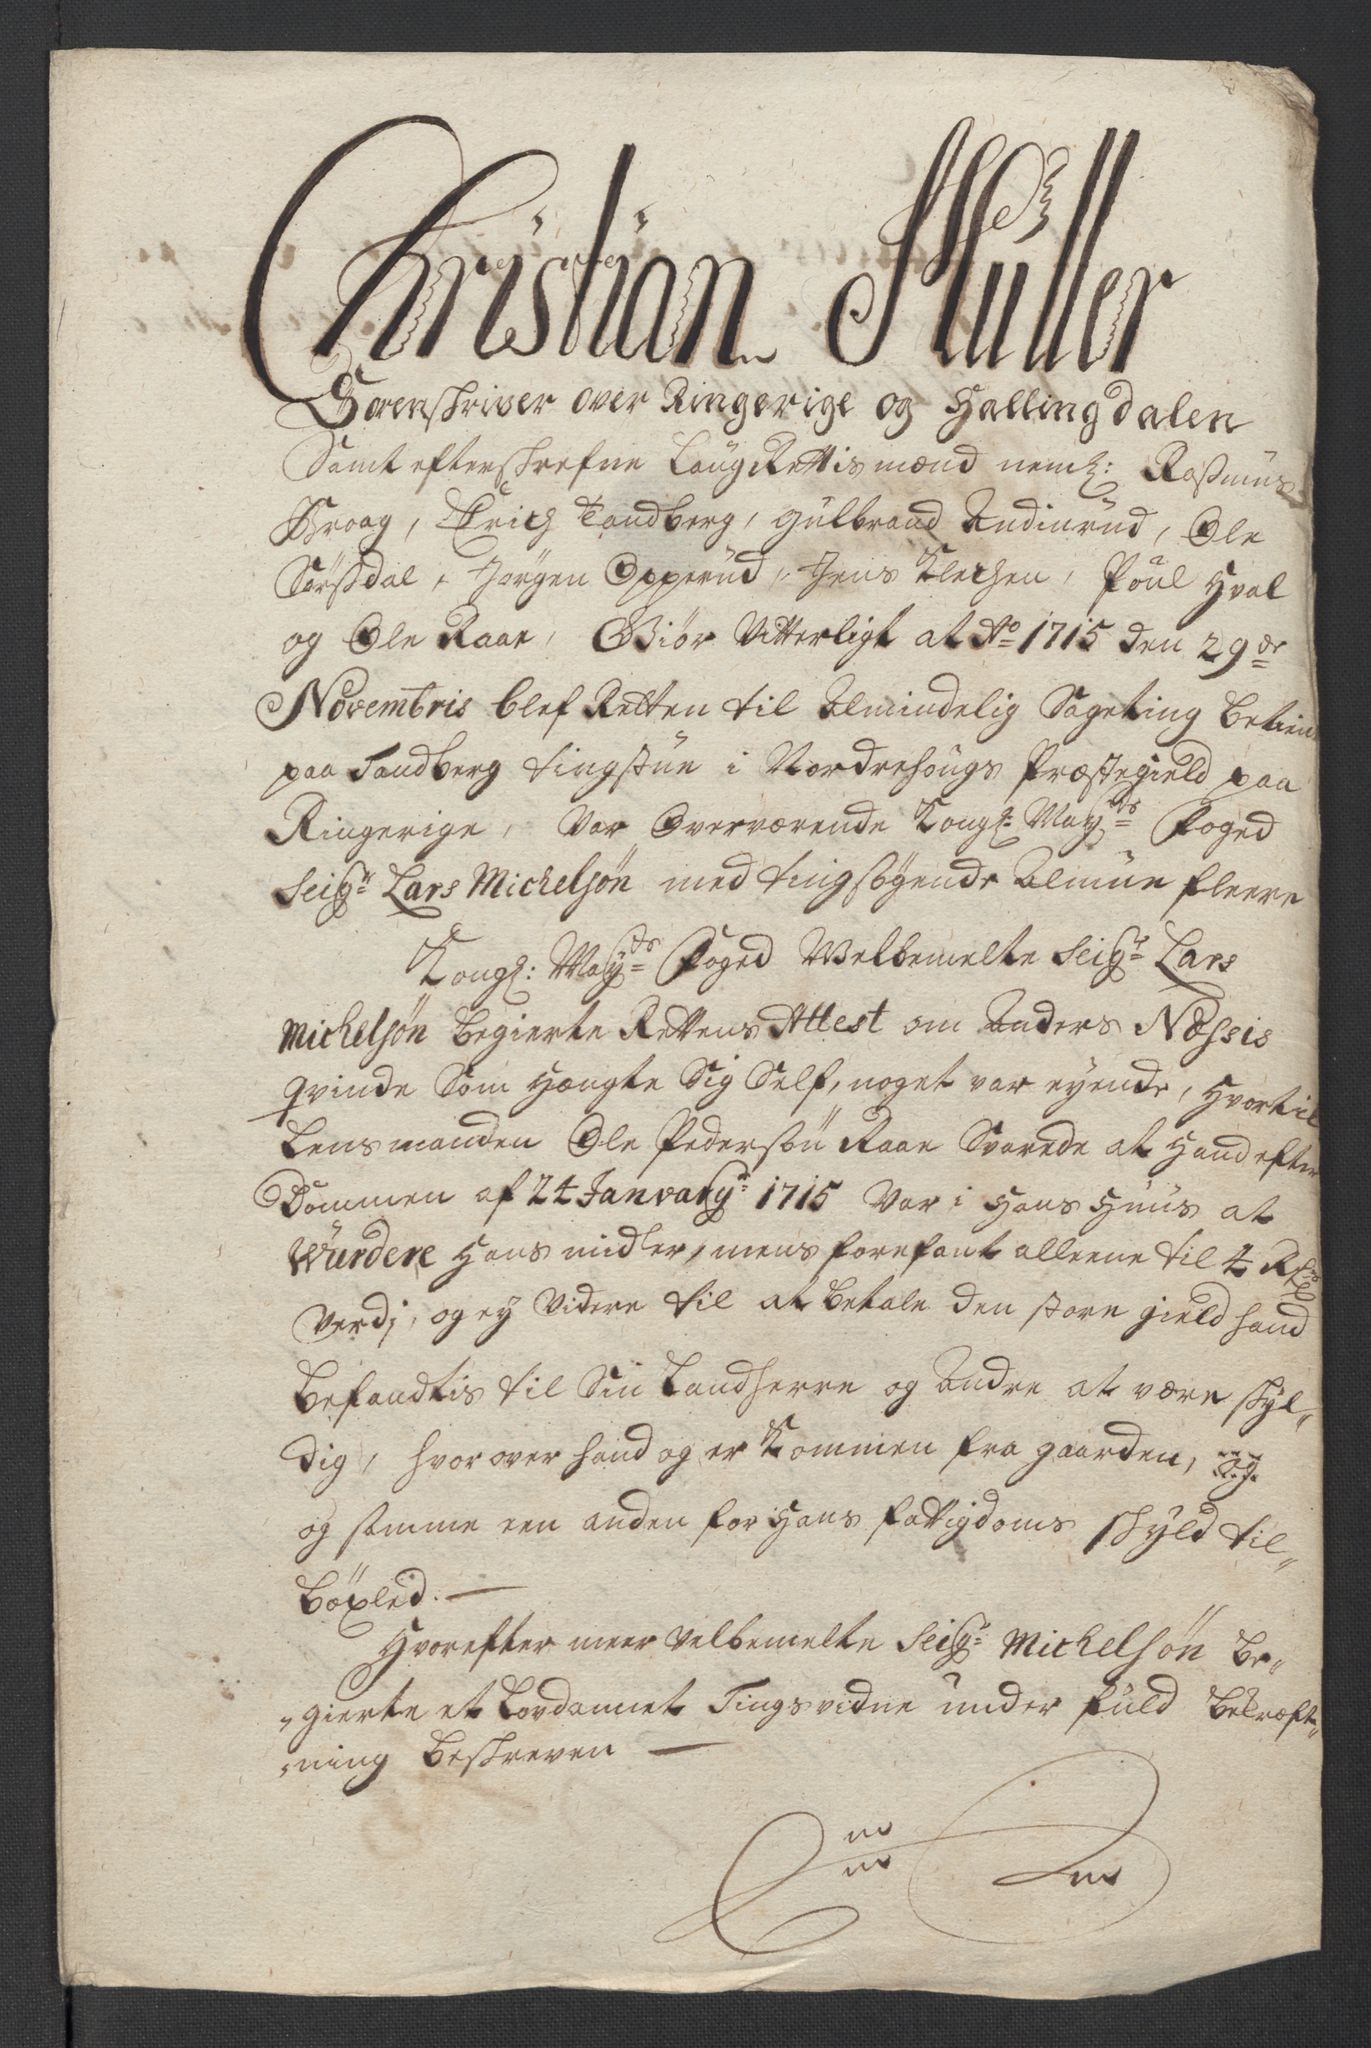 Christian Müller
Sorenskriver over Ringerige og Hallingdalen
Samt efterskrefne Laug Rettis mænd neml: Rasmus
Braag, Erich Tandberg, Gulbrand Andinrud, Ole
Sørssdal, Jørgen Opperud, Jens Klechen, Poul Hval
og Ole Raae, Giør Vitterligt at Ao 1715 den 29de
Novembris blef Retten til Almindelig Sageting betient
paa Tandberg tingstue i Nordrehougs Præstegield paa
Ringerige, Var Overværende Kongl: Mayts Foged
Seigr Lars Michelsøn med tingsøgende Almue fleere
Kongl: Mayts Foged Welbemelte Seigr Lars
Michelsøn begierte Rettens Attest om Anders Næssis
qvinde Som Hængte Sig Self, noget var eyende, Hvortil
Lensmanden Ole Pedersøn Raae Svarede at Hand efter
Dommen af 24 January 1715 Var i Hans Huus at
Wurdere Hans midler, mens forefant alleene til 4 Rdrs
Verdj, og ey Videre til at betale den store gield hand
befandtis til Sin Landherre og Andre at være skyl„
dig, hvor over hand og er Kommen fra gaarden, og
og samme een anden for Hans fattigdoms skyld til„
bøxled. —
Hvorefter meer velbemelte Seigr Michelsøn be„
„gierte et Lovdannet Tingsvidne under fuld bekræft„
„ning beskreven —